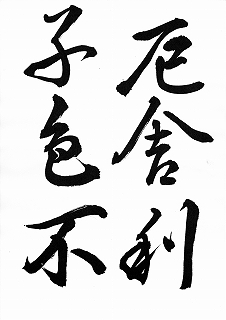 厄舎利
子色不